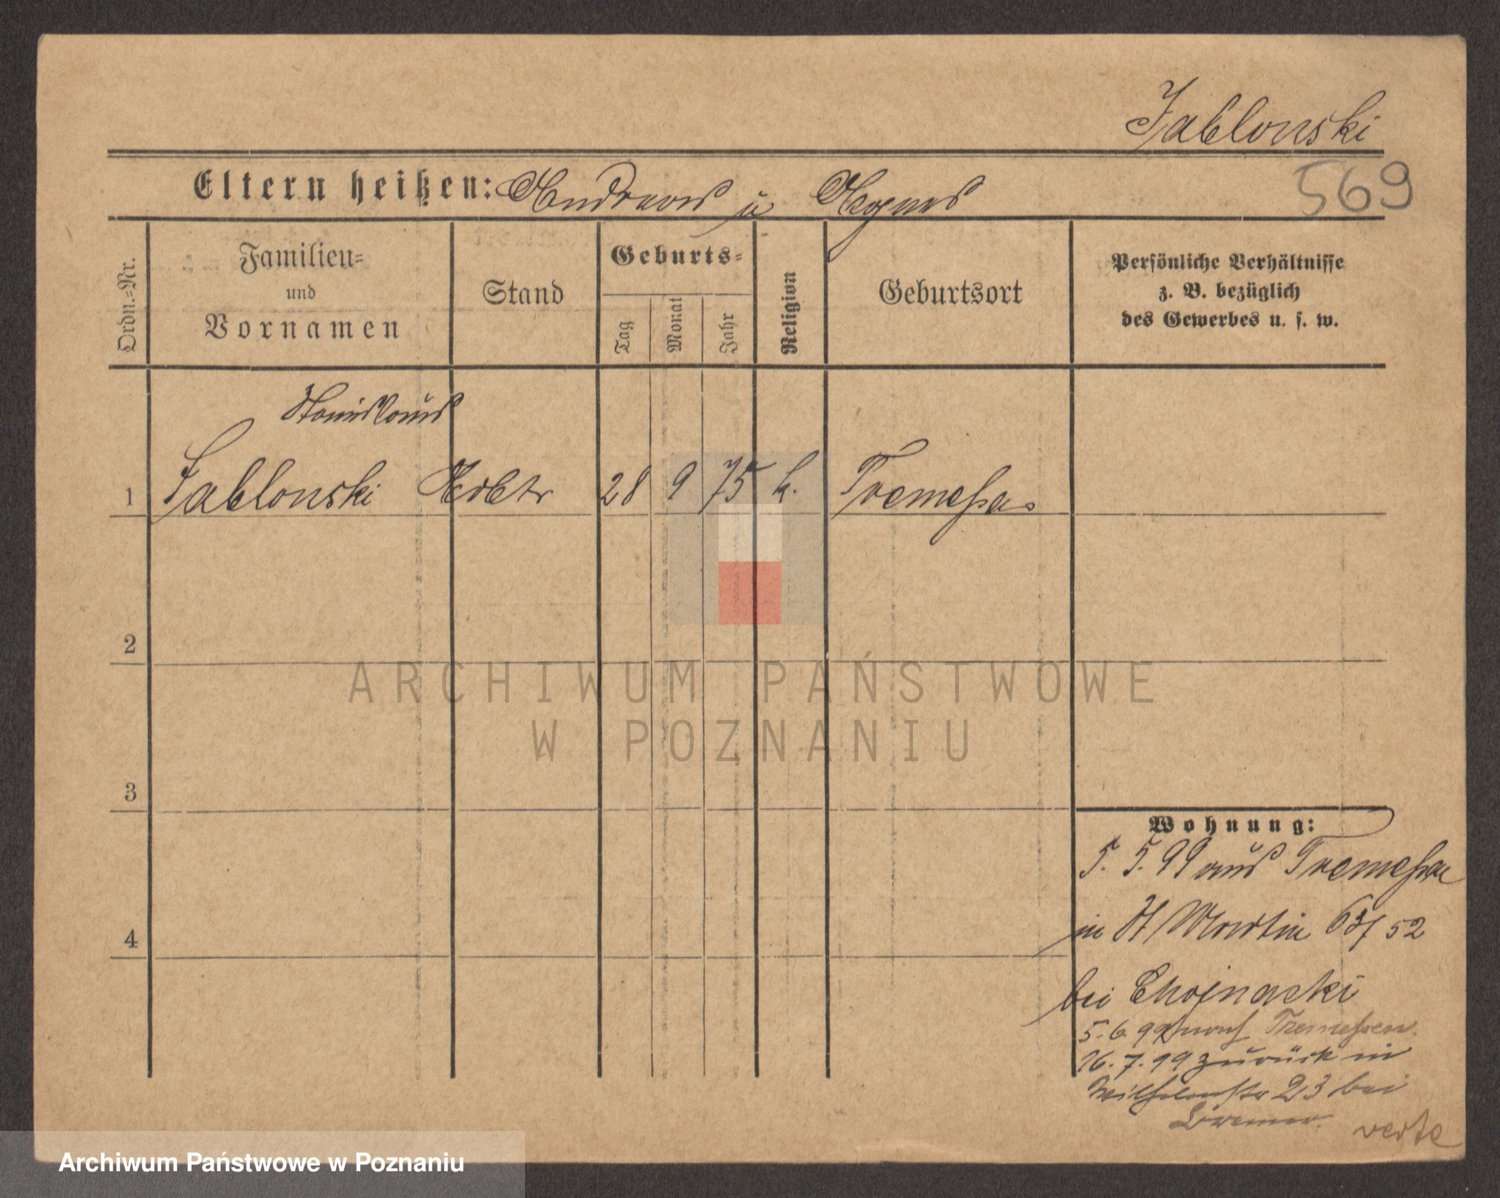 Jablonski
569
Eltern heißen: Andreas u Agnes
Ordn.=Nr.
Familien=
und
Vornamen
Stand
Geburts=
Tag
Monat
Jahr
Religion
Geburtsort
Persönliche Verhältnisse
z. B. bezüglich
des Gewerbes u. s. w.
Stanislaus
1 Jablonski Arbtr 28 9 75 k. Tremessen
2
3
4
ARCHIWUM PAŃSTWOWE
W POZNANIU
Wohnung:
5. 5. 99 aus Tremessen
in St Martin 52
bei Chojnacki
5.6.99 nach Tremessen.
16.7.99 zurück in
Wilhelmstr 23 bei
verte
Archiwum Państwowe w Poznaniu